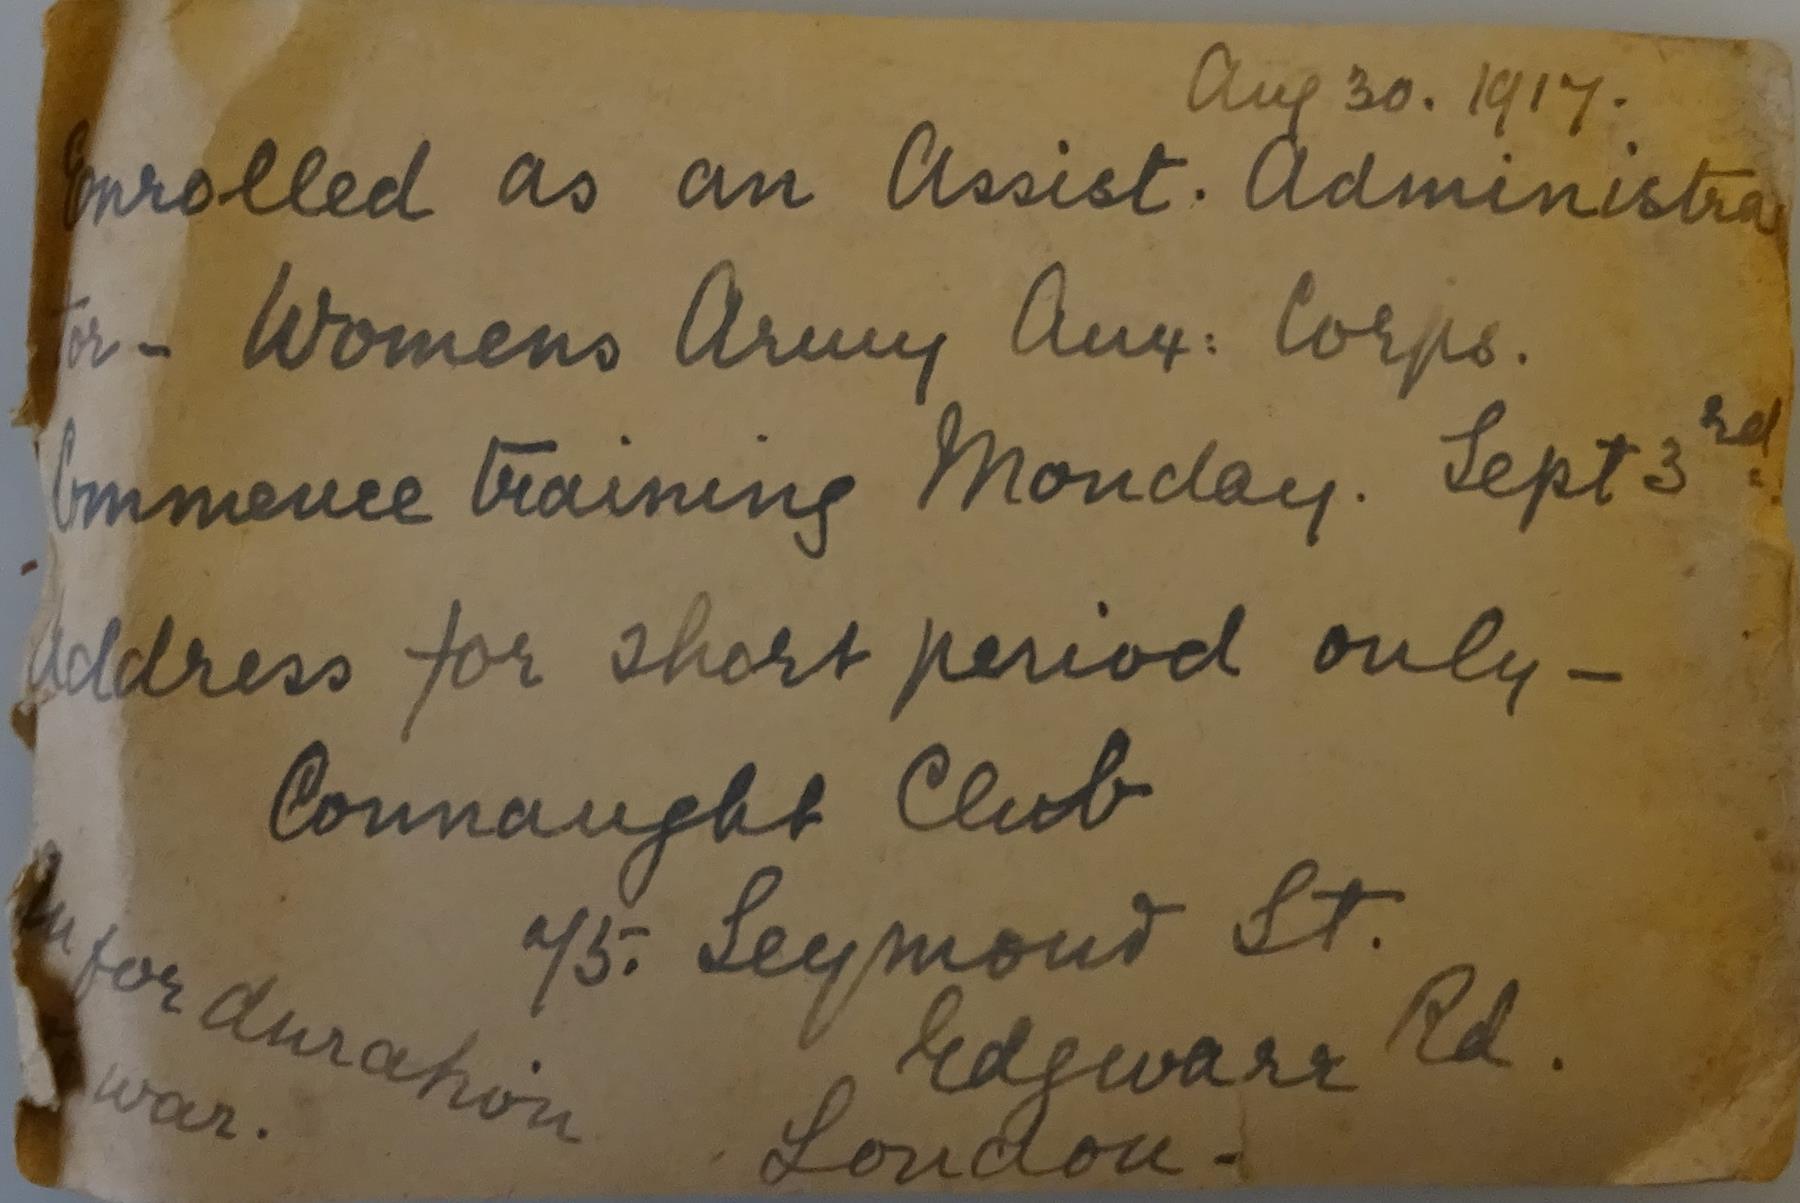 Aug 30. 1917.
Enrolled as an Assist. Administra
tor - Womens Army Aux: Corps.
Commence training Monday. Sept 3rd.
Address for short period only -
Connaught Club
75. Seymour St.
Edgware Rd.
London -
In for duration
war.